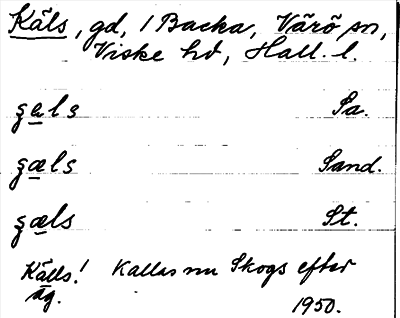 Käls, gd, i Backa, Värö sn,
Viske hd, Hall. l.
ʂals Sa.
ʂæls Sand.
ʂæls St.
Källs! Kallas nu Skogs efter
äg. 1950.